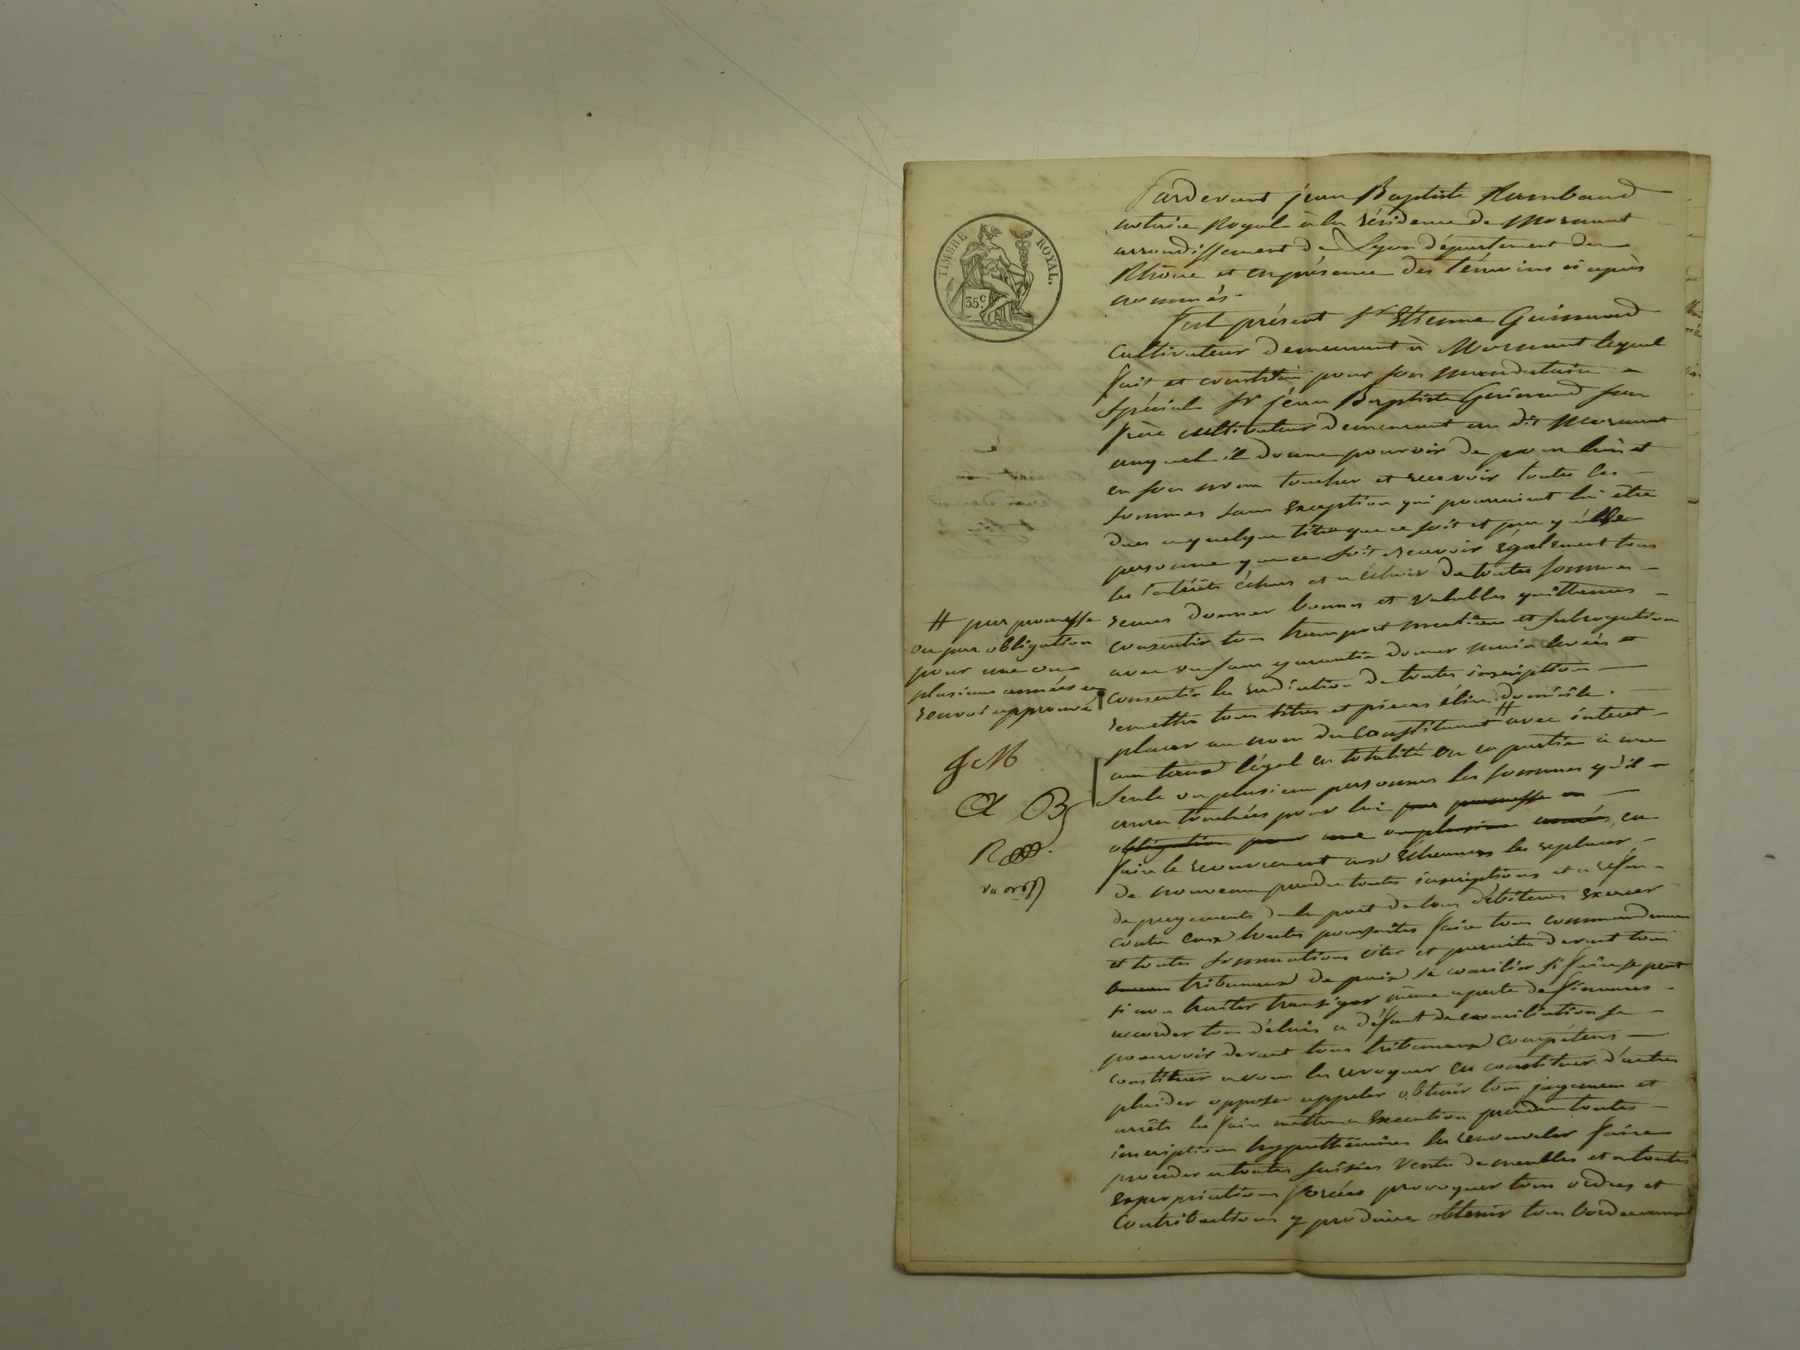 TIMBRE ROYAL.
35 c.
Pardevant jean Baptiste Rambaud
notaire Royal à la résidence de Mornant
arrondissement de Lyon département du
Rhône et en présence des témoins ci après
nommés.
Fut présent Sr Etienne Guinand
cultivateur demeurant à Mornant lequel
fait et constitue pour son mandataire
spécial Sr jean Baptiste Guinand son
frère cultivateur demeurant au dit Mornant
auquel il donne pouvoir de pour lui et
en son nom toucher et recevoir toutes les
sommes sans exception qui pourraient lui être
dues a quelque titre que ce soit et par quelle
personne que ce soit recevoir également tous
les intérêts échus et a échoir de toutes sommes
reçues donner bonnes et valables quittances
consentir tous transport mention et subrogation
avec ou sans garantie donner main levées et
consentir la radiation de toutes inscription
remettre tous titres et pieces élire domicile.
placer au nom du constituant # avec interet
au taux légal en totalité ou en partie à une
seule ou plusieurs personnes les sommes qu'il
aura touchées pour lui par promesse ou
obligation pour une ou plusieurs années, en
faire le recouvrement aux échéances les replacer
de nouveau prendre toutes inscriptions et a refus
de payements de la part de tous débiteurs exercer
contre eux toutes poursuites faire tous commandemens
et toutes sommations citer et paraitre devant tous
tribunaux de paix se concilier si faire se peut
si non traiter transiger même a perte de finances
accorder tous délais a défaut de conciliation se
pourvoir devant tous tribunaux compétens
constituer avoué les revoquer en constituer d'autres
plaider opposer appeler obtenir tous jugemens et
arrêts les faire mettre a exécution prendre toutes
inscriptions hypothécaires les renouveler faire
procéder a toutes saisies vente de meubles et a toutes
expropriations forcées provoquer tous ordres et
contributions y produire obtenir tous bordereaux
# par promesse
ou par obligation
pour une ou
plusieurs années
renvoi approuvé